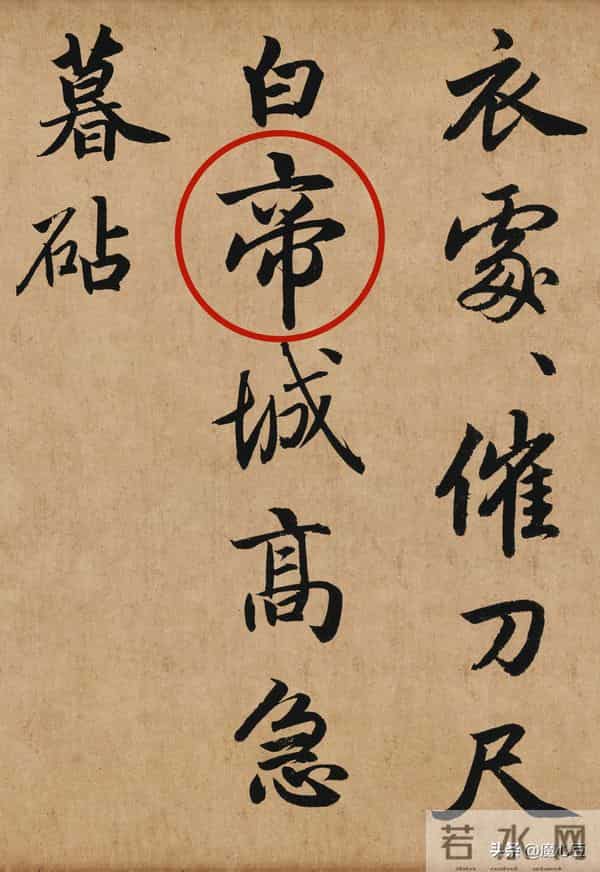 衣處、催刀尺
白帝城高急
暮砧
若水网
头条 @魔心豆